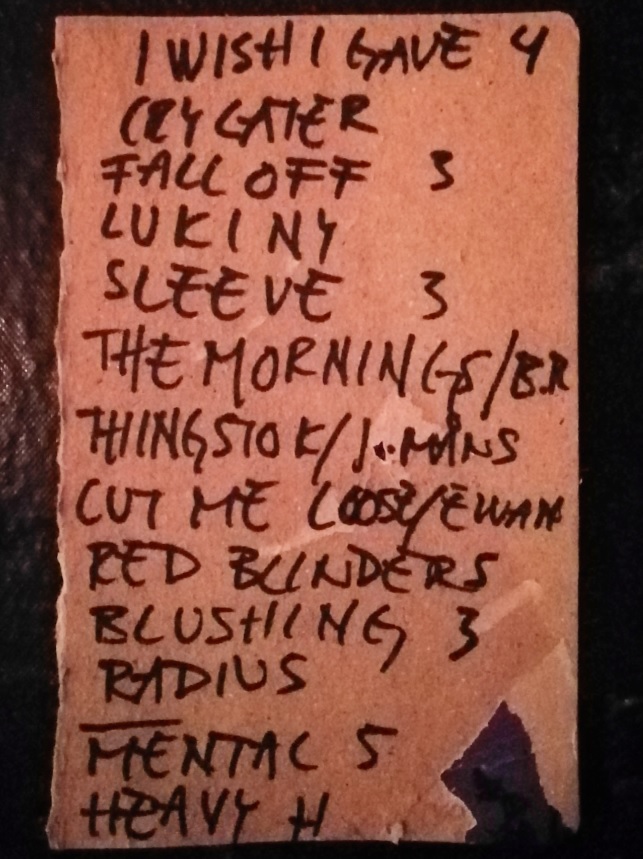 I WISH I GAVE 4
CRY GATER
FALL OFF 3
LUKINY
SLEEVE 3
THE MORNINGS/B.R
THINGS TO K/J..MANS
CUT ME LOOSE/EWAN
RED BLINDERS
BLUSHING 3
RADIUS
MENTAL 5
HEAVY H